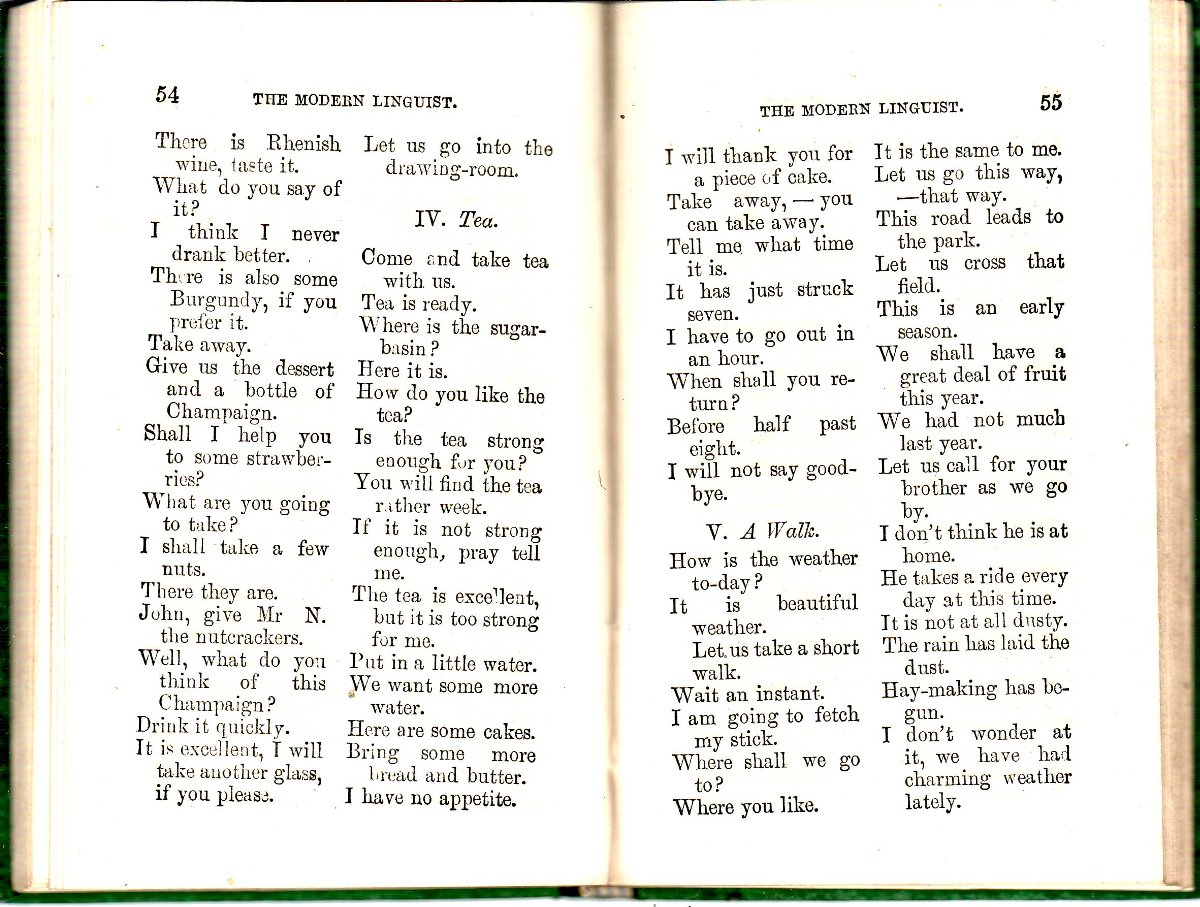 54
THE MODERN LINGUIST.
There is Rhenish
wine, taste it.
What do you say of
it?
I think I never
drank better.
There is also some
Burgundy, if you
prefer it.
Take away.
Give us the dessert
and a bottle of
Champaign.
Shall I help you
to some strawber-
ries?
What are you going
to take?
I shall take a few
nuts.
There they are.
John, give Mr N.
the nutcrackers.
Well, what do you
think of this
Champaign?
Drink it quickly.
It is excellent, I will
take another glass,
if you please.
Let us go into the
drawing-room.
IV. Tea.
Come and take tea
with us.
Tea is ready.
Where is the sugar-
basin?
Here it is.
How do you like the
tea?
Is the tea strong
enough for you?
You will find the tea
rather week.
If it is not strong
enough, pray tell
me.
The tea is excellent,
but it is too strong
for me.
Put in a little water.
We want some more
water.
Here are some cakes.
Bring some more
bread and butter.
I have no appetite.
THE MODERN LINGUIST.
55
I will thank you for
a piece of cake.
Take away, — you
can take away.
Tell me what time
it is.
It has just struck
seven.
I have to go out in
an hour.
When shall you re-
turn?
Before half past
eight.
I will not say good-
bye.
V. A Walk.
How is the weather
to-day?
It is beautiful
weather.
Let us take a short
walk.
Wait an instant.
I am going to fetch
my stick.
Where shall we go
to?
Where you like.
It is the same to me.
Let us go this way,
—that way.
This road leads to
the park.
Let us cross that
field.
This is an early
season.
We shall have a
great deal of fruit
this year.
We had not much
last year.
Let us call for your
brother as we go
by.
I don't think he is at
home.
He takes a ride every
day at this time.
It is not at all dusty.
The rain has laid the
dust.
Hay-making has be-
gun.
I don't wonder at
it, we have had
charming weather
lately.